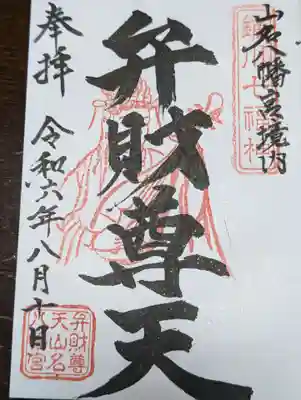 山名八幡宮境内
弁財尊天
奉拝
令和六年八月十日
弁財尊
天山名
八幡宮